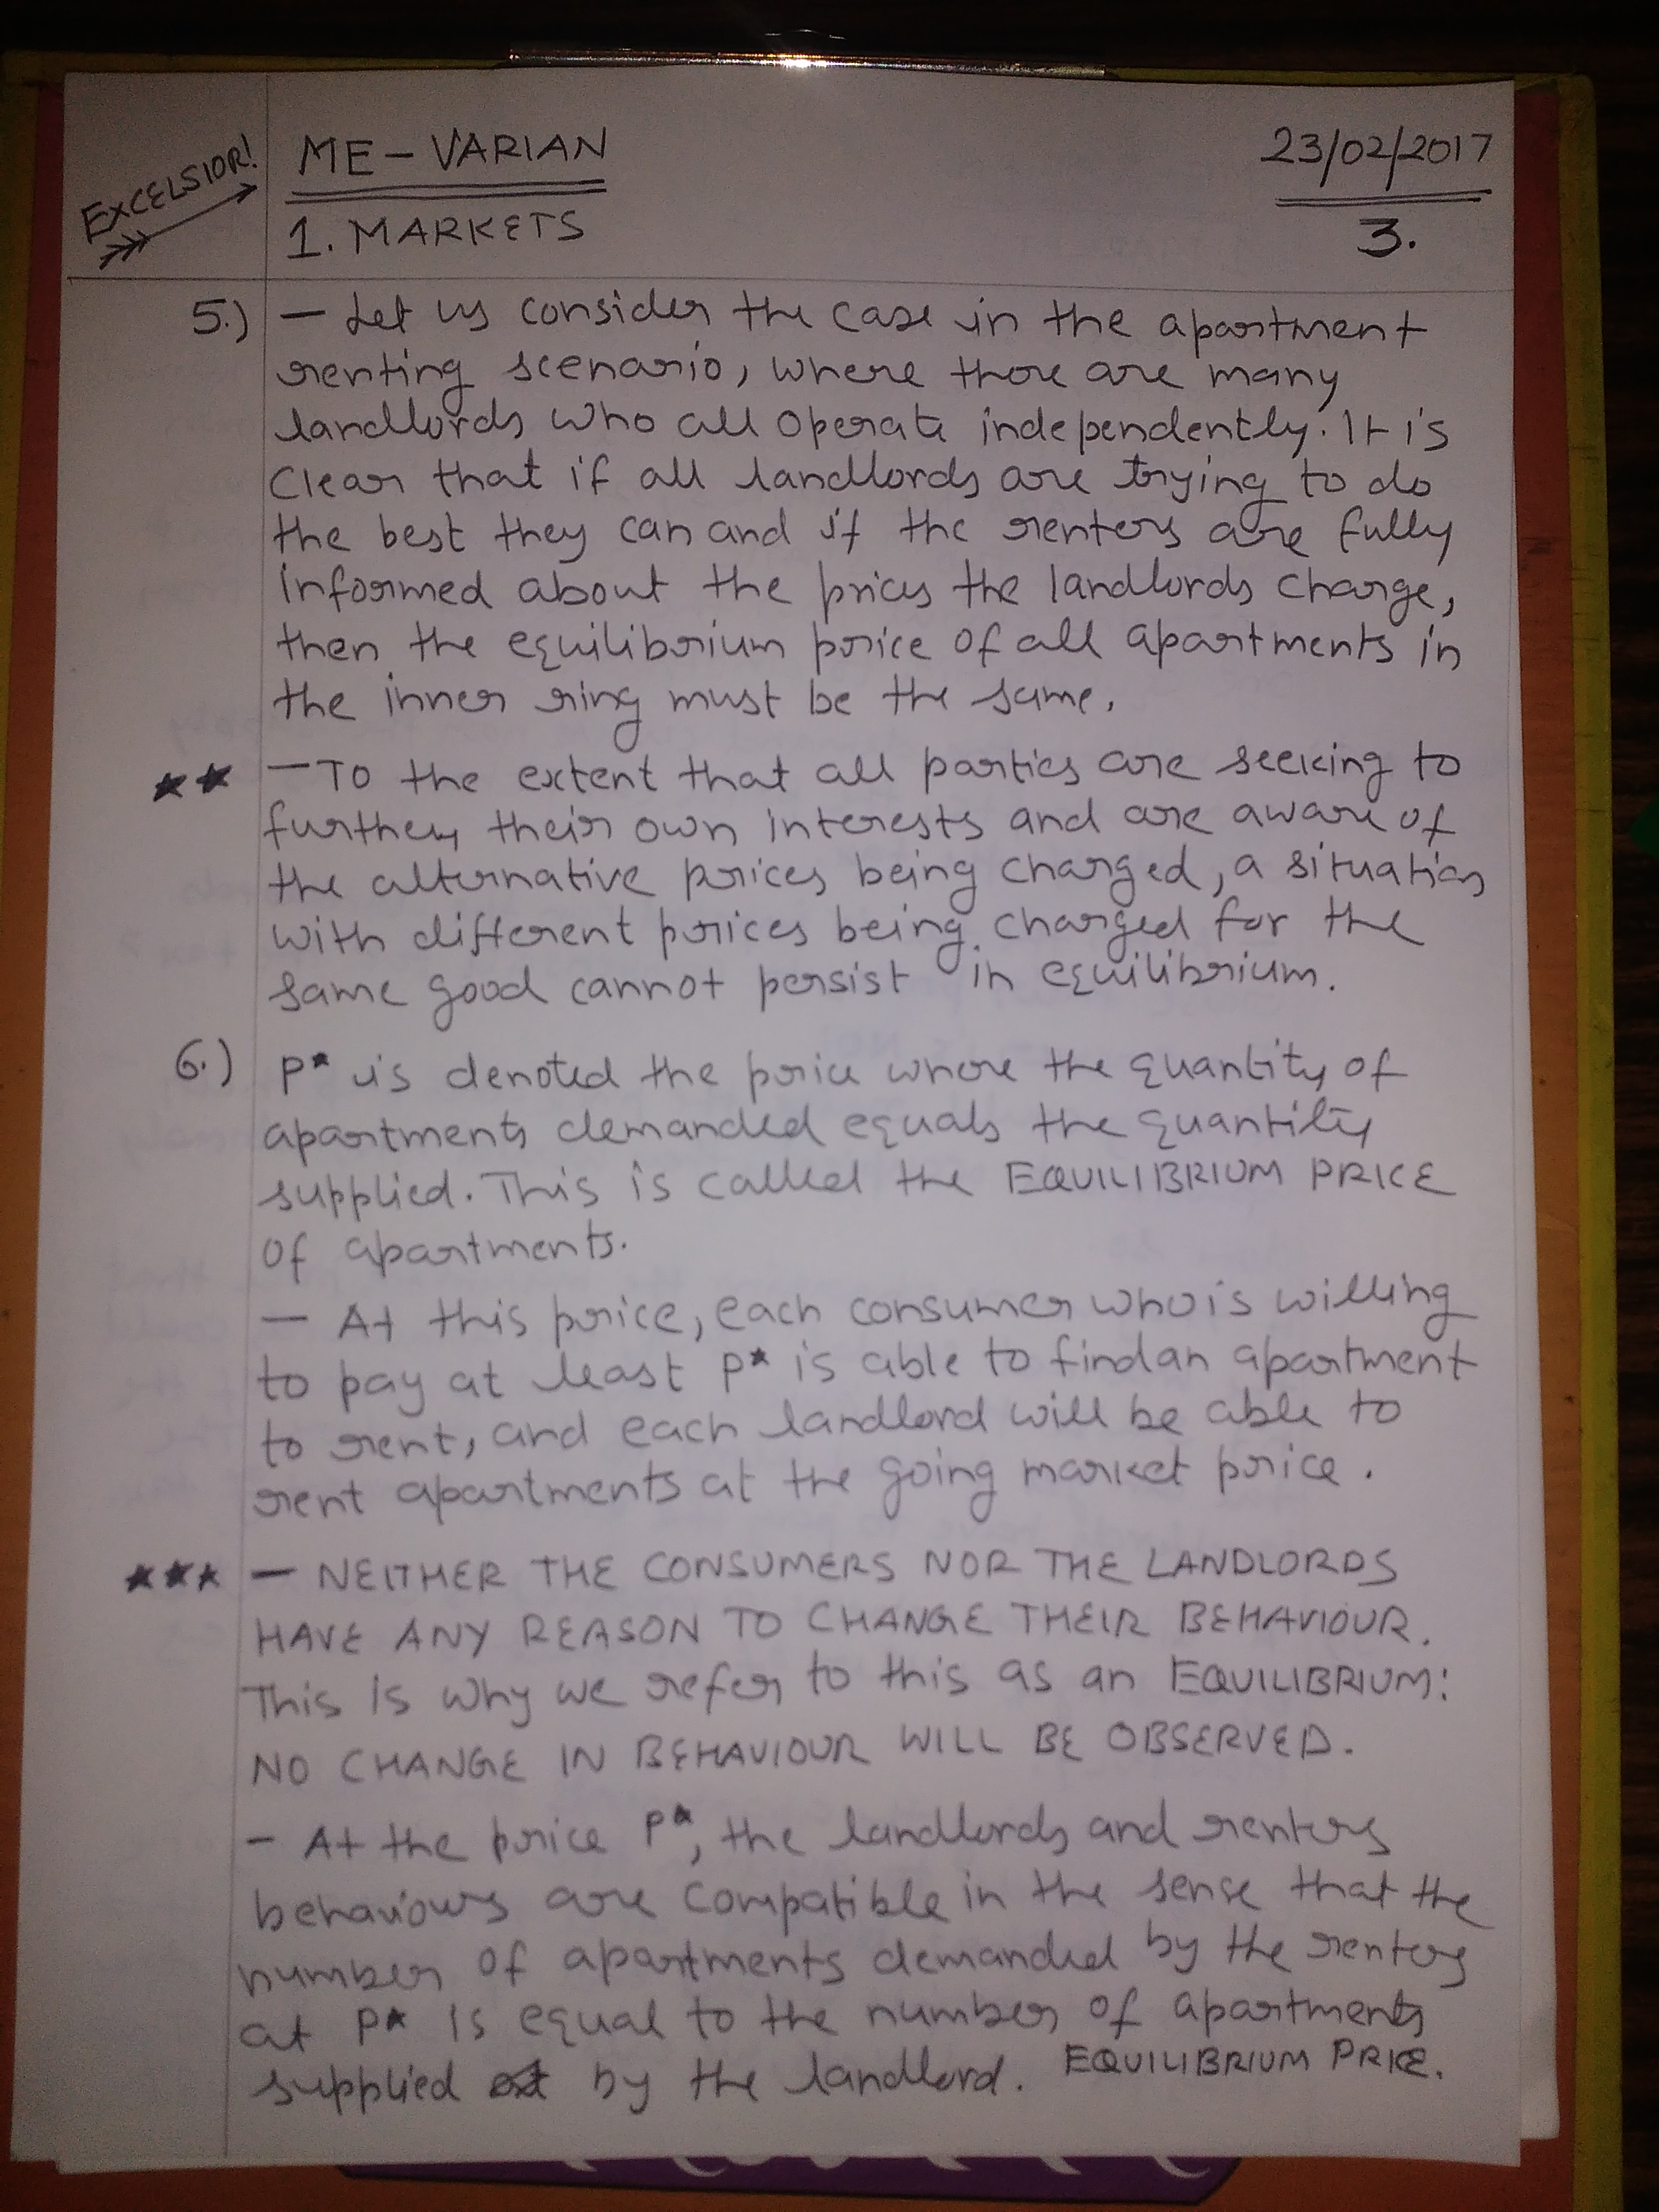 EXCELSIOR!
ME - VARIAN
1. MARKETS
23/02/2017
3.
5.) — Let us consider the case in the apartment
renting scenario, where there are many
landlords who all operate independently. It is
clear that if all landlords are trying to do
the best they can and if the renters are fully
informed about the prices the landlords charge,
then the equilibrium price of all apartments in
the inner ring must be the same.
★★ — To the extent that all parties are seeking to
further their own interests and are aware of
the alternative prices being charged, a situation
with different prices being charged for the
same good cannot persist in equilibrium.
6.) P* is denoted the price where the quantity of
apartments demanded equals the quantity
supplied. This is called the EQUILIBRIUM PRICE
of apartments.
— At this price, each consumer who is willing
to pay at least P* is able to find an apartment
to rent, and each landlord will be able to
rent apartments at the going market price.
★★★ — NEITHER THE CONSUMERS NOR THE LANDLORDS
HAVE ANY REASON TO CHANGE THEIR BEHAVIOUR.
This is why we refer to this as an EQUILIBRIUM:
NO CHANGE IN BEHAVIOUR WILL BE OBSERVED.
- At the price P*, the landlords and renters
behaviours are compatible in the sense that the
number of apartments demanded by the renters
at P* is equal to the number of apartments
supplied by the landlord. EQUILIBRIUM PRICE.